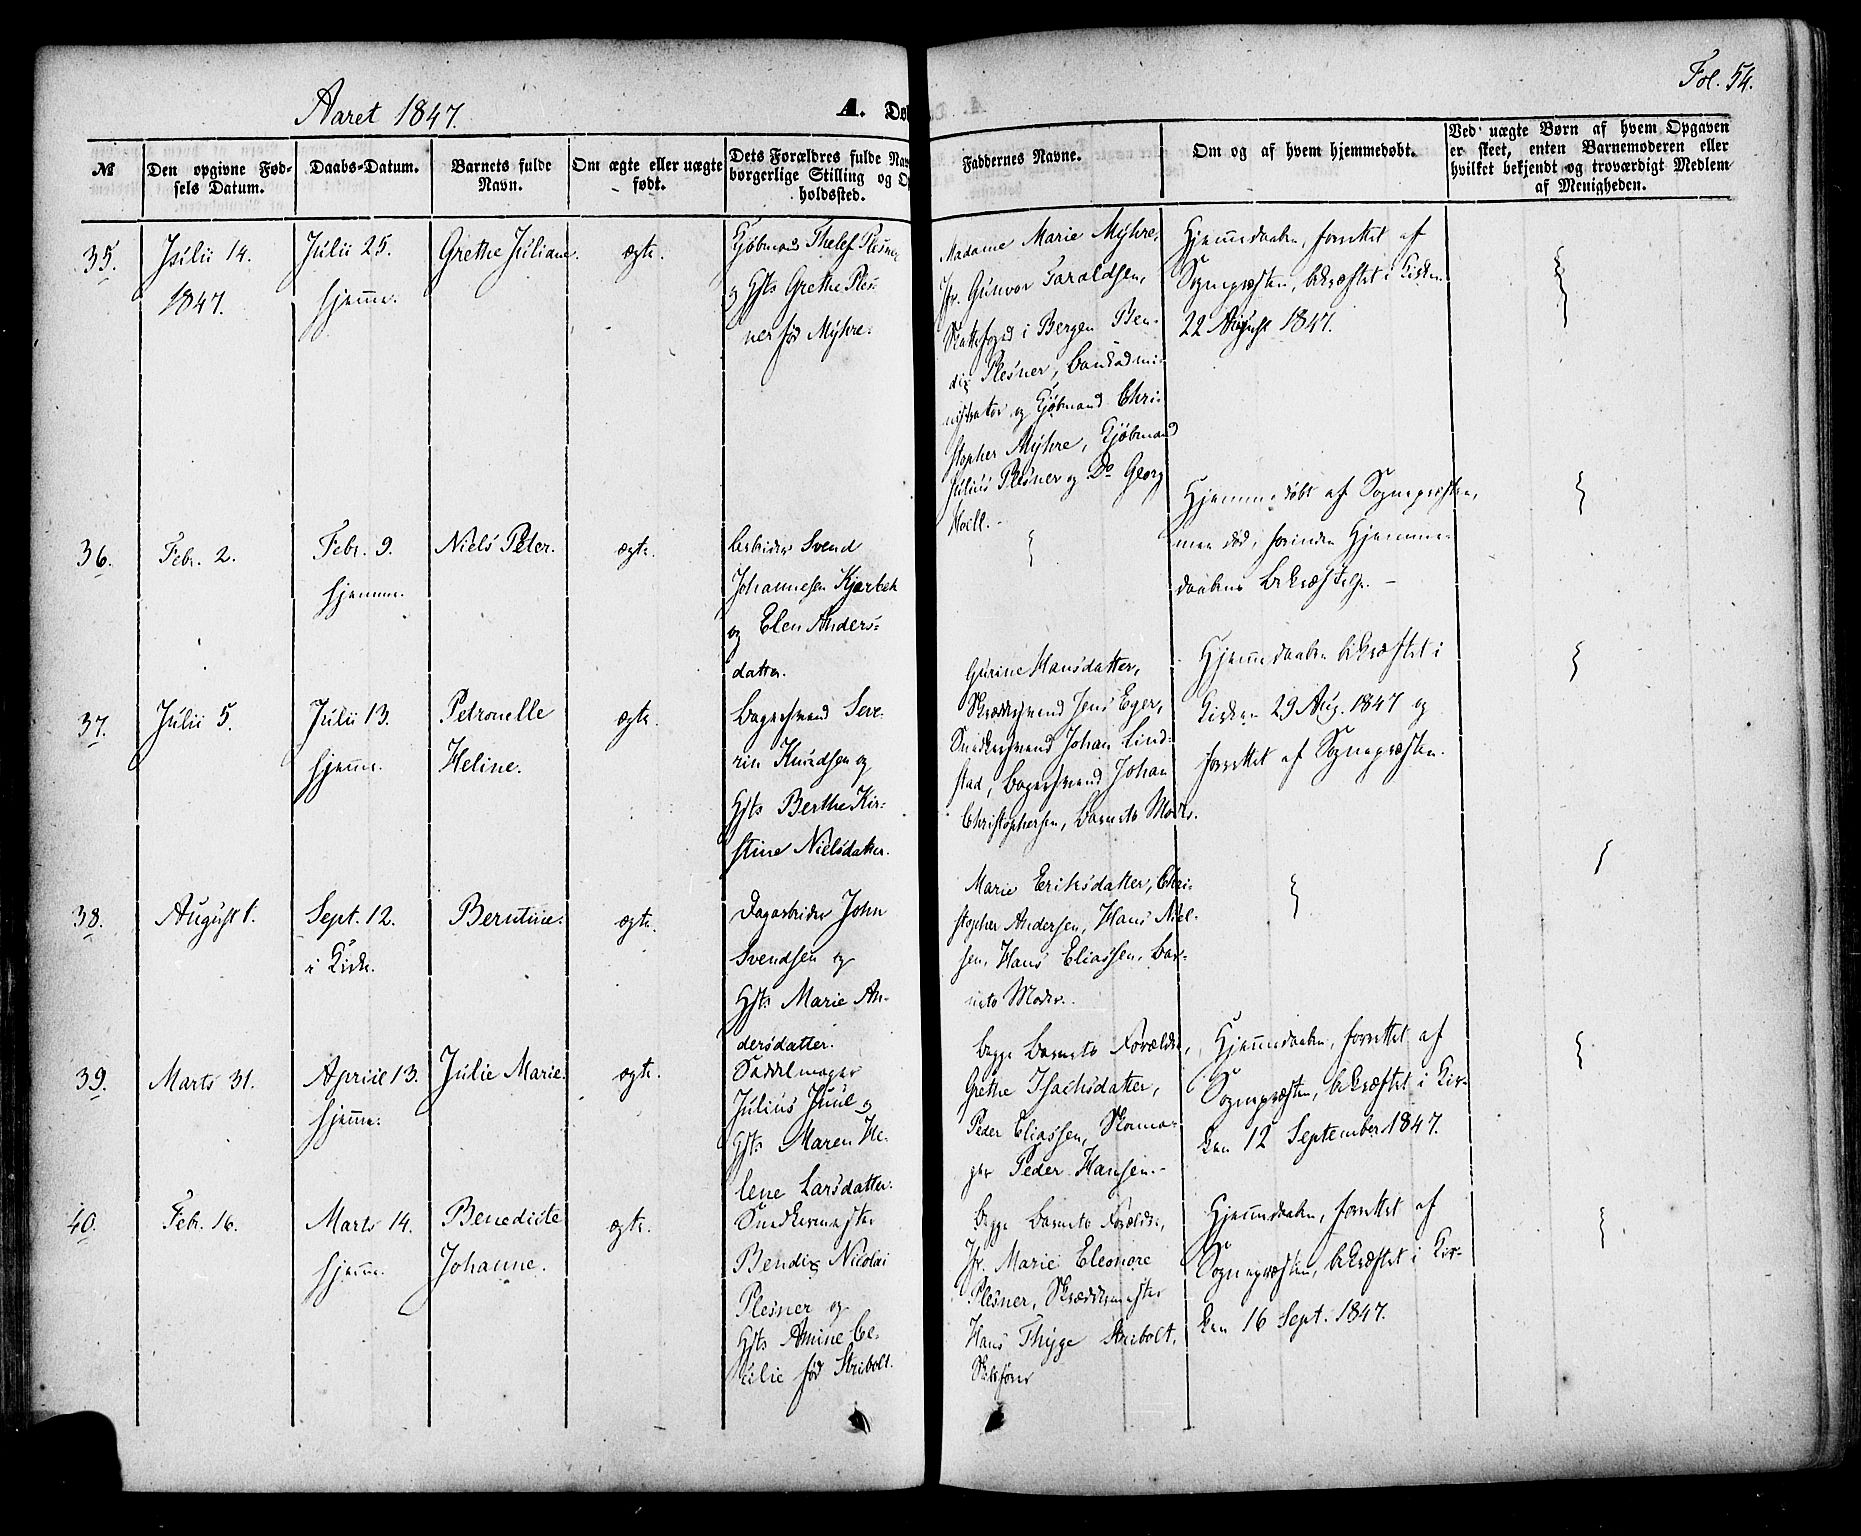 Fol. 54.
Aaret 1847.
A. Dø
№
Den opgivne Fød-
sels Datum.
Daabs-Datum.
Barnets fulde
Navn.
Om ægte eller uægte
født.
Dets Forældres fulde Nav
borgerlige Stilling og O
holdssted.
Faddernes Navne.
Om og af hvem hjemmedøbt.
Ved uægte Børn af hvem Opgaven
er skeet, enten Barnemoderen eller
hvilket bekjendt og troværdigt Medlem
af Menigheden.
35.
Julii 14.
1847.
Julii 25.
hjemme.
Grethe Juliane.
ægte.
Kjøbmand Thelef Plesner
og Hst. Grethe Ples-
ner fød Myhre.
Madame Marie Myhre,
Jfr. Gunvor Taraldsen,
i Bergen Ben-
dix Plesner,
og Kjøbmand Chri-
stopher Myhre, Kjøbmand
Julius Plesner og Do Georg
Hjemmedaaben, forrettet af
Sognepræsten, bekræftet i Kirken
22 August 1847.
36.
Febr. 2.
Febr. 9.
hjemme.
Niels Peter.
ægte.
Arbeider Svend
Johannesen Kjærbek
og Elen Anders-
datter.
Hjemmedøbt af Sognepræsten,
men død, forinden Hjemme-
daabens Bekræftelse. -
37.
Julii 5.
Julii 13.
hjemme.
Petronelle
Heline.
ægte.
Bagersvend Seve-
rin Knudsen og
Hst. Berthe Kir-
stine Nielsdatter.
Gurine Hansdatter,
Skræddersvend Jens Eger,
Snedkersvend Johan Lind-
stad, Bagersvend Johan
Christophersen, Barnets Moder.
Hjemmedaaben bekræftet i
Kirken 29 Aug. 1847 og
forrettet af Sognepræsten.
38.
August 1.
Sept. 12.
i Kirke.
Berntine.
ægte.
Dagarbeider John
Svendsen og
Hst. Marie An-
dersdatter.
Marie Eriksdatter, Chri-
stopher Andersen, Hans Niel-
sen, Hans Eliassen, Bar-
nets Moder.
39.
Marts 31.
Apriil 13.
hjemme.
Julie Marie.
ægte.
Saddelmager
Julius Juul og
Hst. Maren He-
lene Larsdatter.
Begge Barnets Forældre,
Grethe Isachsdatter,
Peder Eliassen, Skoma-
ger Peder Hansen.-
Hjemmedaaben, forrettet af
Sognepræsten, bekræftet i Kir-
ken 12 September 1847.
40.
Febr. 16.
Marts 14.
hjemme.
Benedicte
Johanne.
ægte.
Snedkermester
Bendix Nicolai
Plesner og
Hst. Amine Ce-
cilie fød Stribolt.
Begge Barnets Forældre,
Jfr. Marie Eleonore
Plesner, Skræddermester
Hans Thyge Stribolt,
Hjemmedaaben, forrettet af
Sognepræsten, bekræftet i Kir-
ken 16 Sept. 1847.